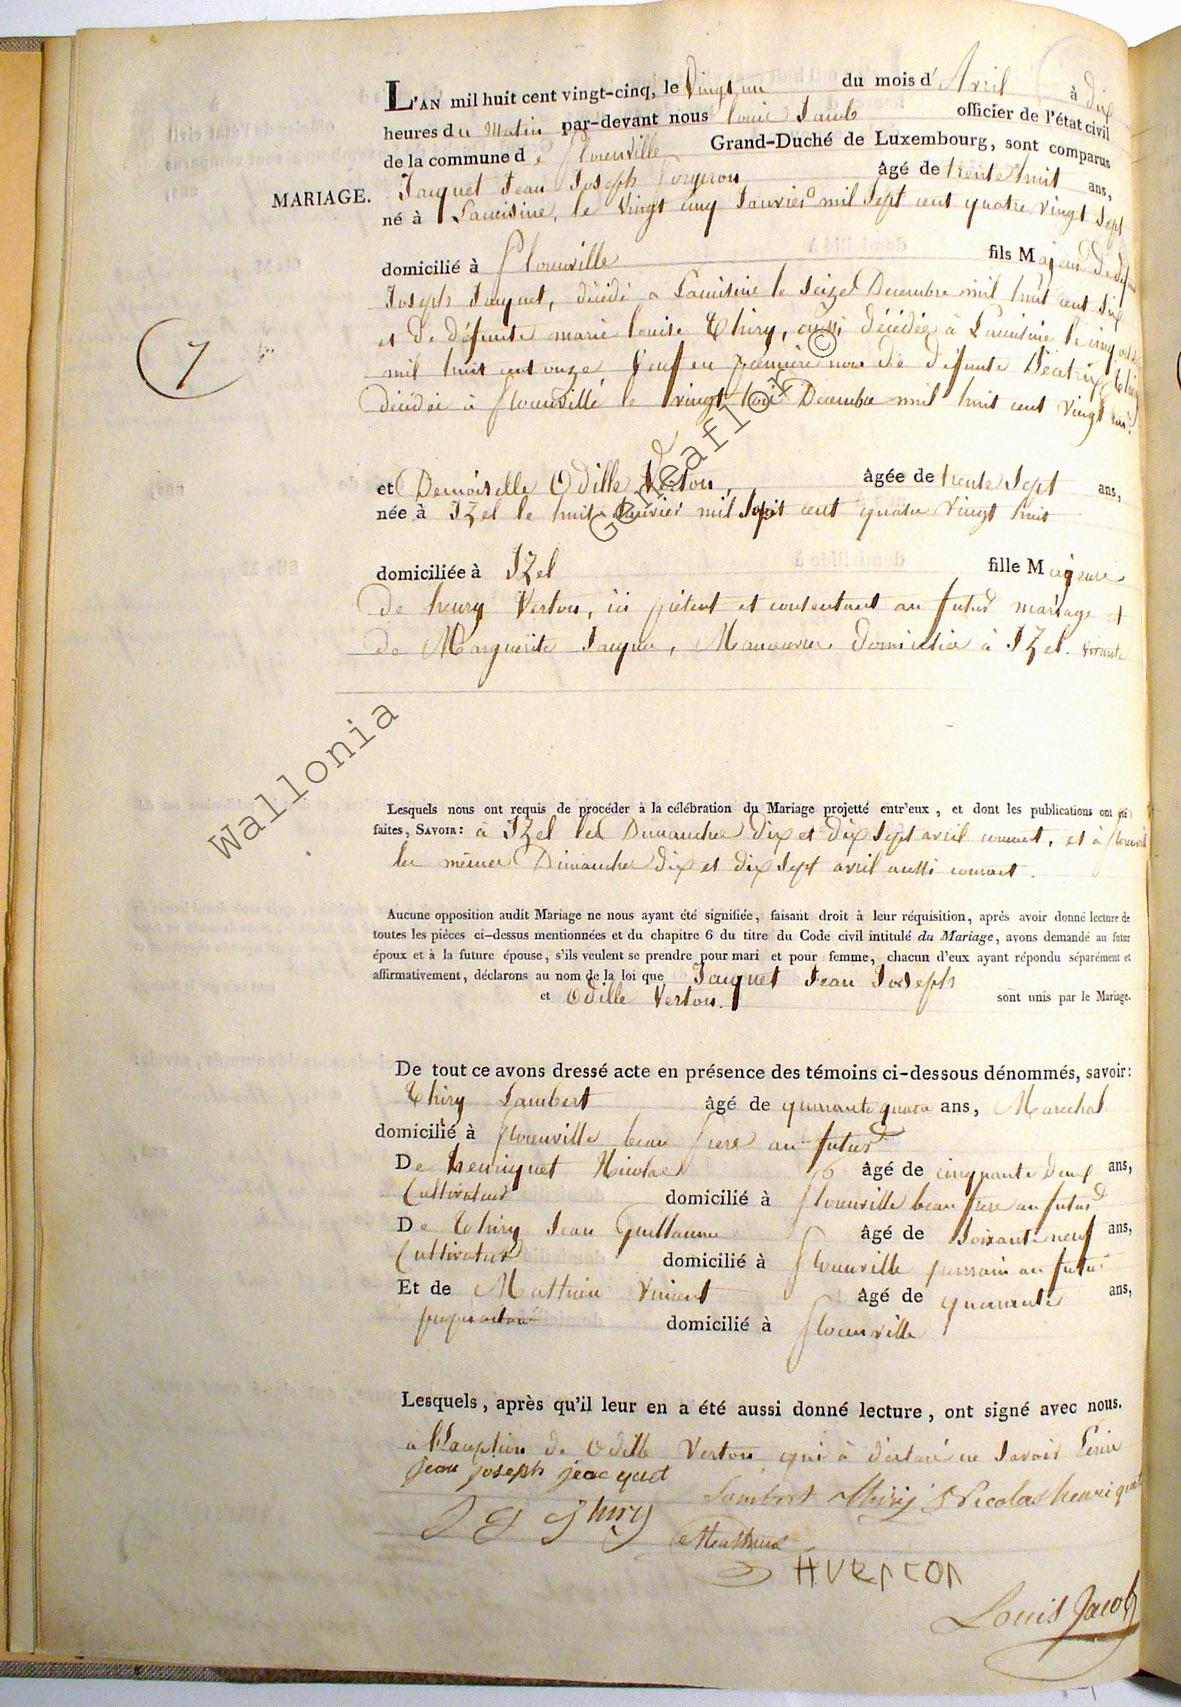 L'AN mil huit cent vingt-cinq, le Vingt un du mois d'Avril à dix
heures du Matin par-devant nous Louis Jacob officier de l'état civil
de la commune de florenville Grand-Duché de Luxembourg, sont comparus
MARIAGE.
Jacquet Jean Joseph forgeron âgé de trente huit ans,
né à Lacuisine, le Vingt cinq Janvier mil Sept cent quatre Vingt Sept
domicilié à florenville fils Majeur de defunt
Joseph Jacquet, décédé a Lacuisine le Seize Decembre mil huit cent six
et de défunte marie louise thiry, aussi décédée à Lacuisine le cinq
mil huit cent onze, Veuf en première noce de defunte Béatrix thiry
décédée à florenville le vingt trois Decembre mil huit cent vingt
7
et Demoiselle Odille Verton, âgée de trente Sept ans,
née à Izel le huit Janvier mil Sept cent quatre Vingt huit
domiciliée à Izel fille Majeure
de henry Verton, ici présent et consentant au futur mariage et
de Marguerite Jacque, Manoeuvre domicilié à Izel. vivante
Lesquels nous ont requis de procéder à la célébration du Mariage projetté entr'eux, et dont les publications ont été
faites, SAVOIR: à Izel les Dimanches dix et dix Sept avril courant, et à florenville
les mêmes Dimanches dix et dix Sept avril aussi courant.
Aucune opposition audit Mariage ne nous ayant été signifiée, faisant droit à leur réquisition, après avoir donné lecture de
toutes les pièces ci-dessus mentionnées et du chapitre 6 du titre du Code civil intitulé du Mariage, avons demandé au futur
époux et à la future épouse, s'ils veulent se prendre pour mari et pour femme, chacun d'eux ayant répondu séparément et
affirmativement, déclarons au nom de la loi que Jacquet Jean Joseph
et Odille Verton. sont unis par le Mariage.
De tout ce avons dressé acte en présence des témoins ci-dessous dénommés, savoir:
Thiry Lambert âgé de quarante quatre ans, Marechal
domicilié à florenville beau frere au futur
De henriquet Nicolas âgé de cinquante deux ans,
Cultivateur domicilié à florenville beau frere au futur
De thiry Jean Guillaume âgé de Soixante neuf ans,
Cultivateur domicilié à florenville parrain au futur
Et de Mathieu Vincent âgé de quarante ans,
proprietaire domicilié à florenville
Lesquels, après qu'il leur en a été aussi donné lecture, ont signé avec nous.
a l'Exception de Odille Verton qui à déclaré ne Savoir Ecrire
jean joseph jeacquet
Lambert thiry Nicolas henriquet
J G thiry
Mathieu
HVERTON
Louis Jacob
Wallonia Geneaflor ©